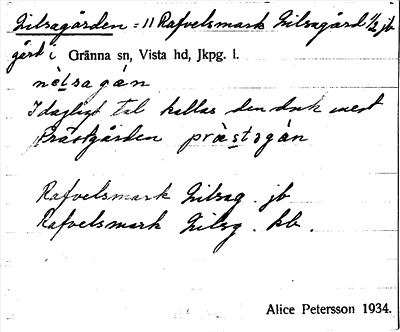 Nilsagården = 11 Rafvelsmark Nilsagård 1/2 jb
gård i Gränna sn, Vista hd, Jkpg. l.
nètsagán
I dagligt tal kallas den dock mest
Prästgården prὰstəgán
Rafvelsmark Nilsag. jb
Rafvelsmark Nilsg. kb.
Alice Petersson 1934.